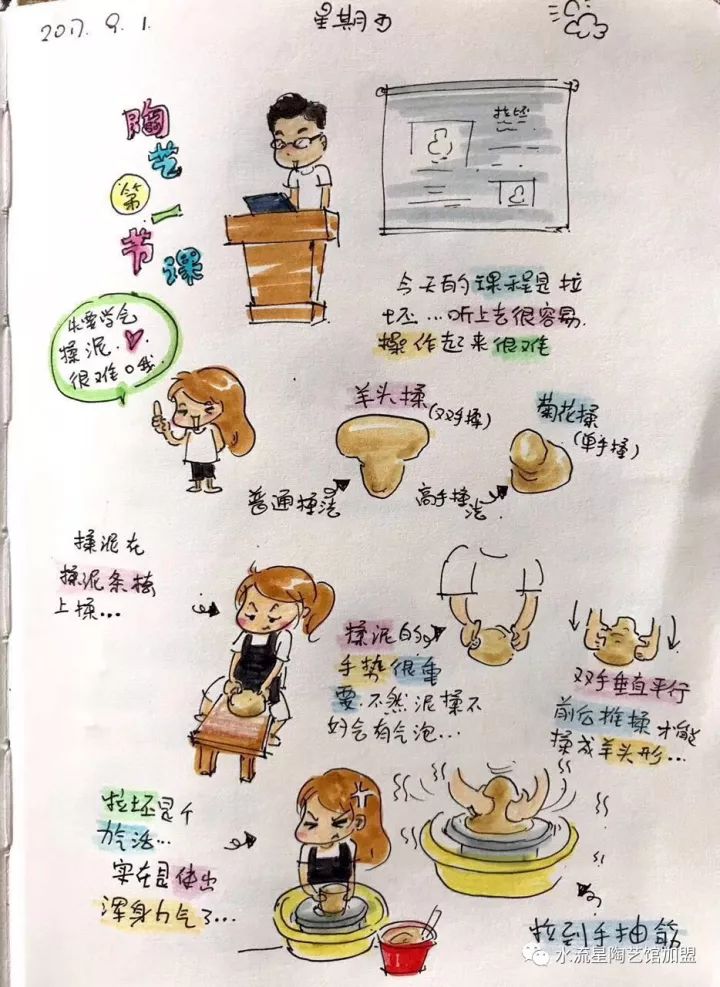 2017. 9. 1.
星期五
陶艺
第一
节课
拉坯
今天的课程是拉
坯...听上去很容易
操作起来很难
先要学会
揉泥
很难哦
羊头揉
(双手揉)
菊花揉
(单手揉)
普通揉法
高手揉法
揉泥在
揉泥条椅
上揉...
揉泥的
手势很重
要.不然泥揉不
好会有气泡...
双手垂直平行
前后推揉才能
揉成羊头形...
拉坯是个
力气活...
实在是使出
浑身力气了...
拉到手抽筋
水流星陶艺馆加盟